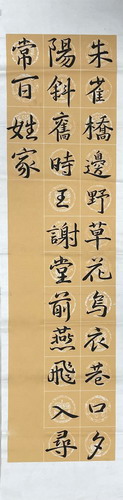 朱雀橋邊野草花烏衣巷口夕
陽斜舊時王謝堂前燕飛入尋
常百姓家